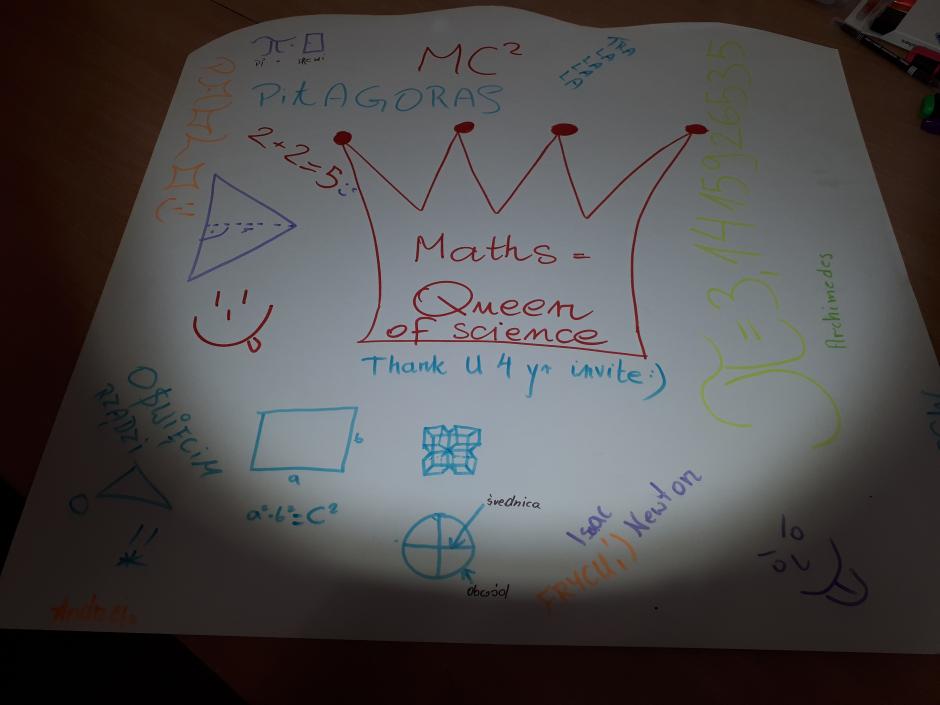 MC²
TRA
LA
LA
LA
LA
PitAGORAS
2+2=5
Maths =
Queen
of science
Thank U 4 yr invite:)
π=3,1415926535
Archimedes
OŚWIĘCIM
RZĄDZI
b
a
a²+b²=C²
średnica
obwód
Isac Newton
FRYCU;)